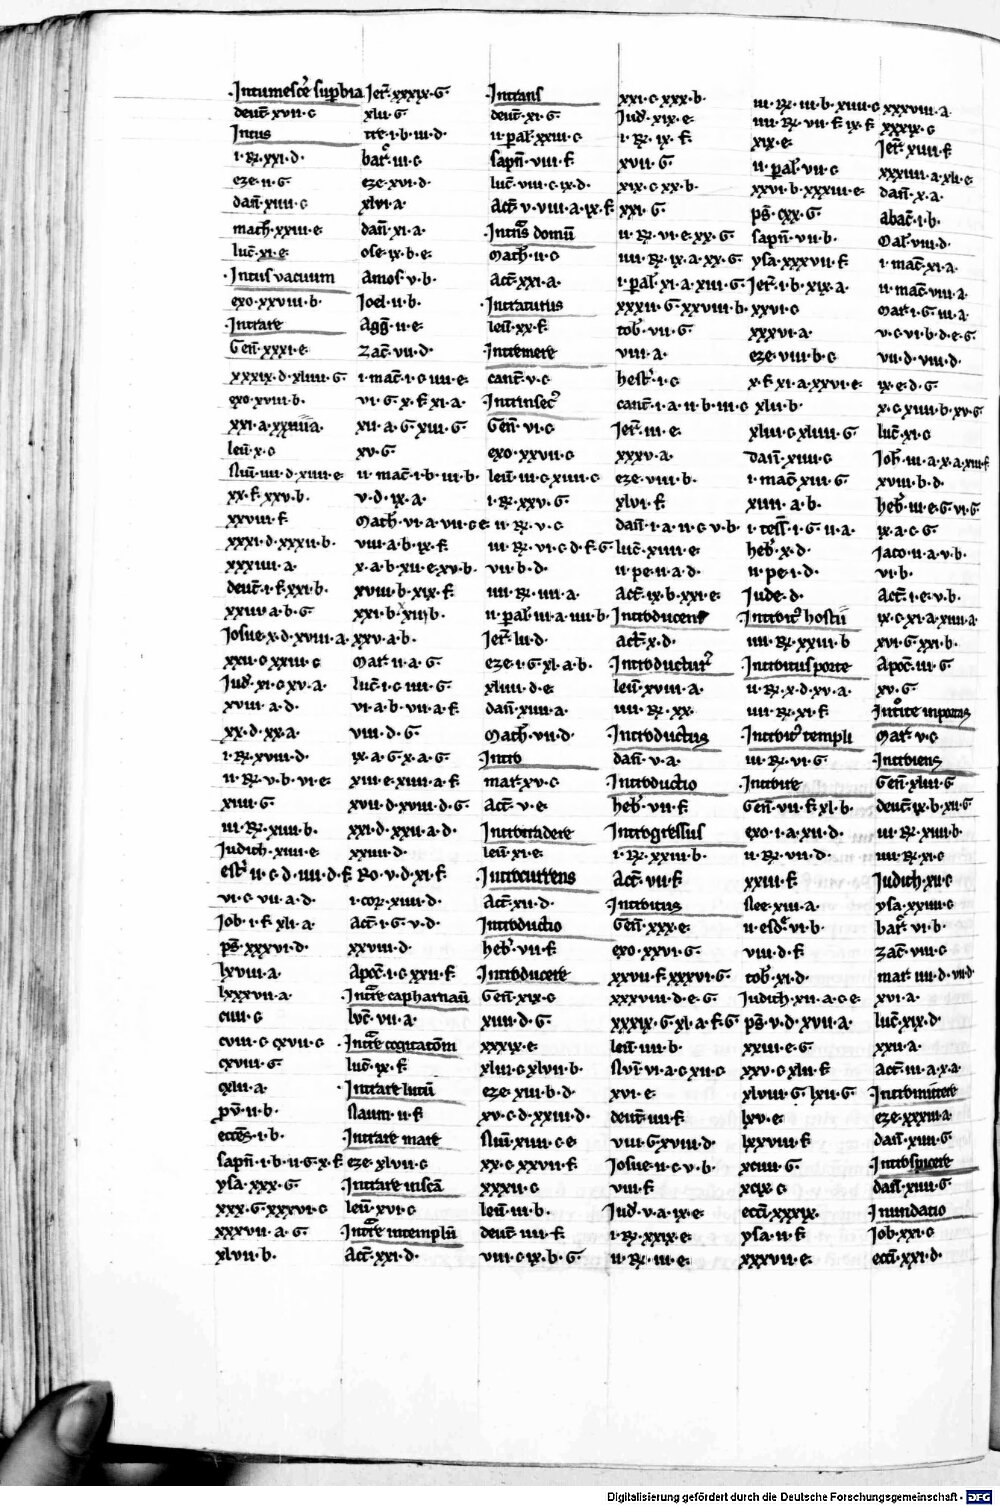 ·Intumesce᷑ suꝑbia
deut̄·xvii·c
Intus
i·ꝶ·xxi·d·
eze·ii·G·
dan̄·xiiii·c
math̄·xxiii·e
luc̄·xi·e
·Intus vacuum
exo·xxviii·b·
·Intrare
Gen̄·xxxi·e
xxxix·d·xliiii·G·
exo·xviii·b·
leu̅·x·c
xx·f·xxv·b·
xxviii·f
xxxi·d·xxxii·b·
xxxiiii·a·
deut̄·i·f·xxi·b·
Iosue·x·d·xviii·a·
xxii·c·xxiii·c
Iud̄·xi·c·xv·a·
xviii·a·d·
xx·d·xx·a·
i·ꝶ·xviii·d·
ii·ꝶ·v·b·vi·e·
xiiii·G·
iii·ꝶ·xiiii·b·
Iudich·xiiii·e
vi·c·vii·a·d·
Iob·i·f·xli·a·
ps̄·xxxvi·d·
lxviii·a·
lxxxvii·a·
ciiii·c
cviii·c·cxvii·c
cxviii·G·
cxlii·a·
ꝓv̄·ii·b·
eccēs·i·b·
sapn̄·i·b·ii·G·x·f
ysa·xxx·G·
xxx·G·xxxvi·c
xxxvii·a·G·
xlvii·b·
Ier̄·xxxix·G·
xlii·G
tre·i·b·iii·d·
bar᷑·iii·c
eze·xvi·d·
xlvi·a·
dan̄·xi·a·
ose·ix·b·e·
Amos·v·b·
Ioel·ii·b·
Agg̅·ii·e·
zac̄·vii·d·
i·mac̄·i·c·iiii·e·
vi·G·x·f·xi·a·
xii·a·G·xiii·G·
xv·G·
ii·mac̄·i·b·iii·b·
v·d·ix·a·
viii·a·b·ix·f·
x·a·b·xii·e·xv·b·
xviii·b·xix·f·
xxv·a·b·
Mar᷑·ii·a·G·
luc̄·i·c·iiii·G·
vi·a·b·vii·a·f·
viii·d·G·
ix·a·G·x·a·G·
xiii·e·xiiii·a·f·
xvii·d·xviii·d·G·
xxi·d·xxii·a·d·
xxiiii·d·
Ro·v·d·xi·f·
i·cor·xiiii·d·
Act̄·i·G·v·d·
xxviii·d·
Apoc̄·i·c·xxii·f·
·Intᷓre capharnau̅
luc̄·vii·a·
·Intᷓre cogitatōm
luc̄·ix·f·
·Intrare lutu̅
Naum·ii·f
·Intrare mare
eze·xlvii·c
·Intrare in scā
leu̅·xvi·c
·Intᷓre in templu̅
Act̄·xxi·d·
·Intrans
deut̄·xi·G·
ii·ꝑal̄·xxiii·c
sapn̄·viii·f
luc̄·viii·c·ix·d·
Act̄·v·viii·a·ix·f·
·Intn̄s domu̅
Math̄·ii·c
Act̄·xxi·a·
·Intraturus
leu̅·xx·f
·Intremere
cant̄·v·c
·Intrinsec᷒
Gen̄·vi·c
exo·xxvii·c
leu̅·iii·c·xiiii·c
i·ꝶ·xxv·G·
ii·ꝶ·v·c
iii·ꝶ·vi·c·d·f·G·
vii·b·d·
iiii·ꝶ·iiii·a·
ii·ꝑal̄·iii·a·iiii·b·
Ier̄·lii·d·
eze·i·G·xl·a·b·
xliiii·d·e·
dan̄·xiiii·a·
Math̄·vii·d·
·Intro
mar᷑·xv·c
Act̄·v·e·
·Introtradere
leu̅·xi·e·
·Introcurrens
Act̄·xii·d·
·Introductio
heb᷑·vii·f
·Introducere
Gen̄·xix·c
xiiii·d·G·
xxxix·e·
xliii·c·xlvii·b·
eze·xiii·b·d·
xv·c·d·xxiii·d·
Nu̅·xiiii·c·e·
xx·c·xxvii·f·
xxxii·c
deut̄·iiii·f
viii·c·ix·b·G·
xxi·c·xxx·b·
Iud̄·xix·e·
i·ꝶ·ix·f·
xvii·G·
xix·c·xx·b·
xxi·G·
ii·ꝶ·vi·e·xx·G·
iiii·ꝶ·ix·a·xx·G·
i·ꝑal̄·xi·a·xiii·G·
xxxii·G·xxviii·b·
tob᷑·vii·G·
viii·a·
hest᷑·i·c
cant̄·i·a·ii·b·iii·c
Ier̄·iii·e·
xxxv·a·
eze·viii·b·
xlvi·f·
dan̄·i·a·ii·c·v·b·
luc̄·xiiii·e·
ii·pe·ii·a·d·
Act̄·ix·b·xxi·e·
·Introducens
act̄·x·d·
·Introductur᷒
leu̅·xviii·a·
iiii·ꝶ·xx·
·Introductus
dan̄·v·a·
·Introductio
heb᷑·vii·f
·Introgressus
i·ꝶ·xxiii·b·
Act̄·vii·f
·Introitus
Gen̄·xxx·e·
exo·xxvi·G·
xxvii·f·xxxvi·G·
xxxviii·d·e·G·
xxxix·G·xl·a·f·G·
leu̅·iiii·b·
Nu̅·vi·a·c·xii·c
xvi·e·
deut̄·iiii·f·
viii·G·xviii·d·
Iosue·ii·c·v·b·
viii·f·
Iud̄·v·a·ix·e·
i·ꝶ·xxix·e·
ii·ꝶ·iii·e·
iii·ꝶ·iii·b·xiiii·c
iiii·ꝶ·vii·f·ix·f·
xix·e·
ii·ꝑal̄·vii·c
xxvi·b·xxxiii·e·
ps̄·cxx·G·
sapn̄·vii·b·
ysa·xxxvii·f·
Ier̄·i·b·xix·a·
xxvi·c
xxxvi·a·
eze·viii·b·c
x·f·xi·a·xxvi·e·
xlii·b·
xliii·c·xliiii·G·
dan̄·xiiii·c
i·mac̄·xiii·G·
xiiii·a·b·
i·tess̄·i·G·ii·a·
heb᷑·x·d·
ii·pe·i·d·
Iude·d·
·Introit᷒ hostii
iiii·ꝶ·xxiii·b
·Introitus porte
ii·ꝶ·x·d·xv·a·
iiii·ꝶ·xi·f·
·Introit᷒ templi
iii·ꝶ·vi·G·
·Introire
Gen̄·vii·f·xl·b·
exo·i·a·xii·d·
ii·ꝶ·vii·d·
xxiii·f·
Nee·xiii·a·
ii·esd᷑·vi·b·
viii·d·f·
tob᷑·xi·d·
Iudich·xii·a·c·e·
ps̄·v·d·xvii·a·
xxiii·e·G·
xxv·c·xlii·f·
xlviii·G·lxii·G·
lxv·e·
lxxviii·f·
xciiii·G·
xcix·c
eccī·xxxix·
ysa·ii·f·
xxxvii·e·
xxxviii·a·
xxxix·c
Ier̄·xiiii·f
xxxiiii·a·xli·c·
dan̄·x·a·
abac̄·i·b·
Mal̄·iii·d·
i·mac̄·xi·a·
ii·mac̄·viii·a·
Mar᷑·i·G·iii·a·
v·c·vi·b·d·e·G·
vii·d·viii·d·
ix·e·d·G·
x·c·xiiii·b·xv·G·
luc̄·xi·c
Ioh̄·iii·a·x·a·xiii·f
xviii·b·d·
heb᷑·iii·e·G·vi·G·
ix·a·c·G·
Iaco·ii·a·v·b·
vi·b·
Act̄·i·e·v·b·
ix·c·xi·a·xiiii·a·
xvi·G·xxi·b·
Apoc̄·iii·G·
xv·G·
·Introite in portas
Mar᷑·v·c
·Introiens
Gen̄·xliii·G
deut̄·ix·b·xii·G·
iii·ꝶ·xiiii·b·
iiii·ꝶ·xi·c
Iudich·xii·c
ysa·xxiiii·c
bar᷑·vi·b·
zac̄·viii·c
mar᷑·iiii·d·vii·d·
xvi·a·
luc̄·xix·d·
xxii·a·
Act̄·iii·a·x·a·
·Intromittere
eze·xxxiii·a·
dan̄·xiiii·G
·Introspicere
dan̄·xiiii·G
·Inundatio
Iob·xxi·c
eccī·xxi·d·
Digitalisierung gefördert durch die Deutsche Forschungsgemeinschaft - DFG